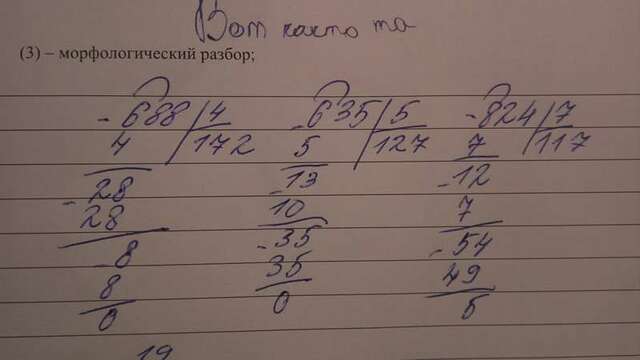 Вот както та
(3) – морфологический разбор;
- 688 | 4 - 635 | 5 - 824 | 7
4 | 172 5 | 127 7 | 117
- 28 - 13 - 12
28 10 7
- 8 - 35 - 54
8 35 49
0 0 5
19